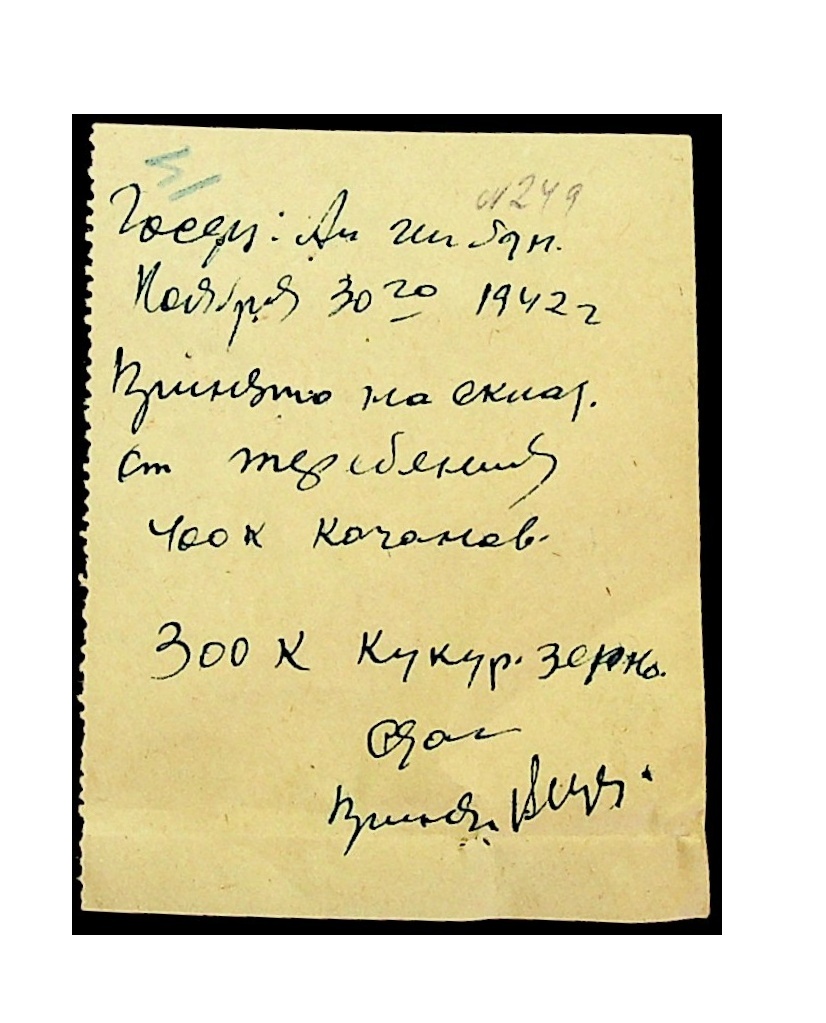 №249
Ноября 30го 1942 г
Принято на склад.
от теребления
400 к Кочанов.
300 К Кукур. зерно.
Сдал
Принял